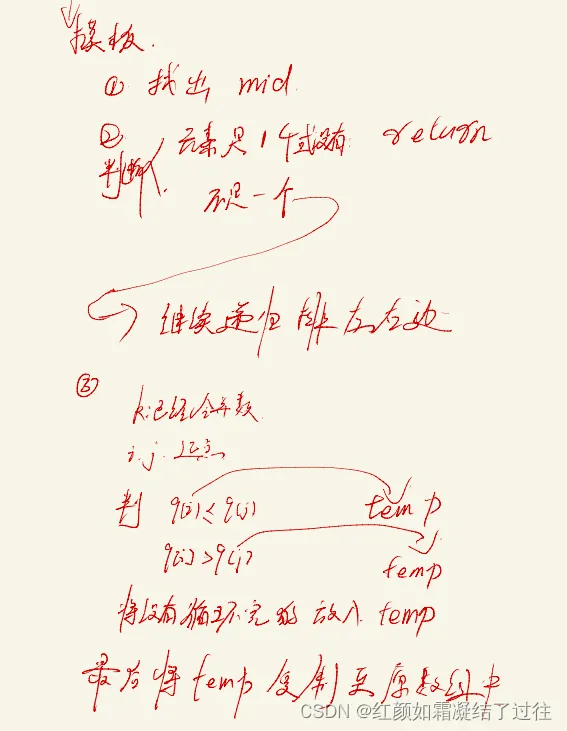 模板.
① 找出 mid.
② 判断 元素只1个或没有 return
不只一个
继续递归排左右边
③
k:已经合并数
i.j.起点
判 q[i]≤q[j] temp
q[i]>q[j] temp
将没有循环完的放入 temp
最后将temp复制至原数组中
CSDN @红颜如霜凝结了过往